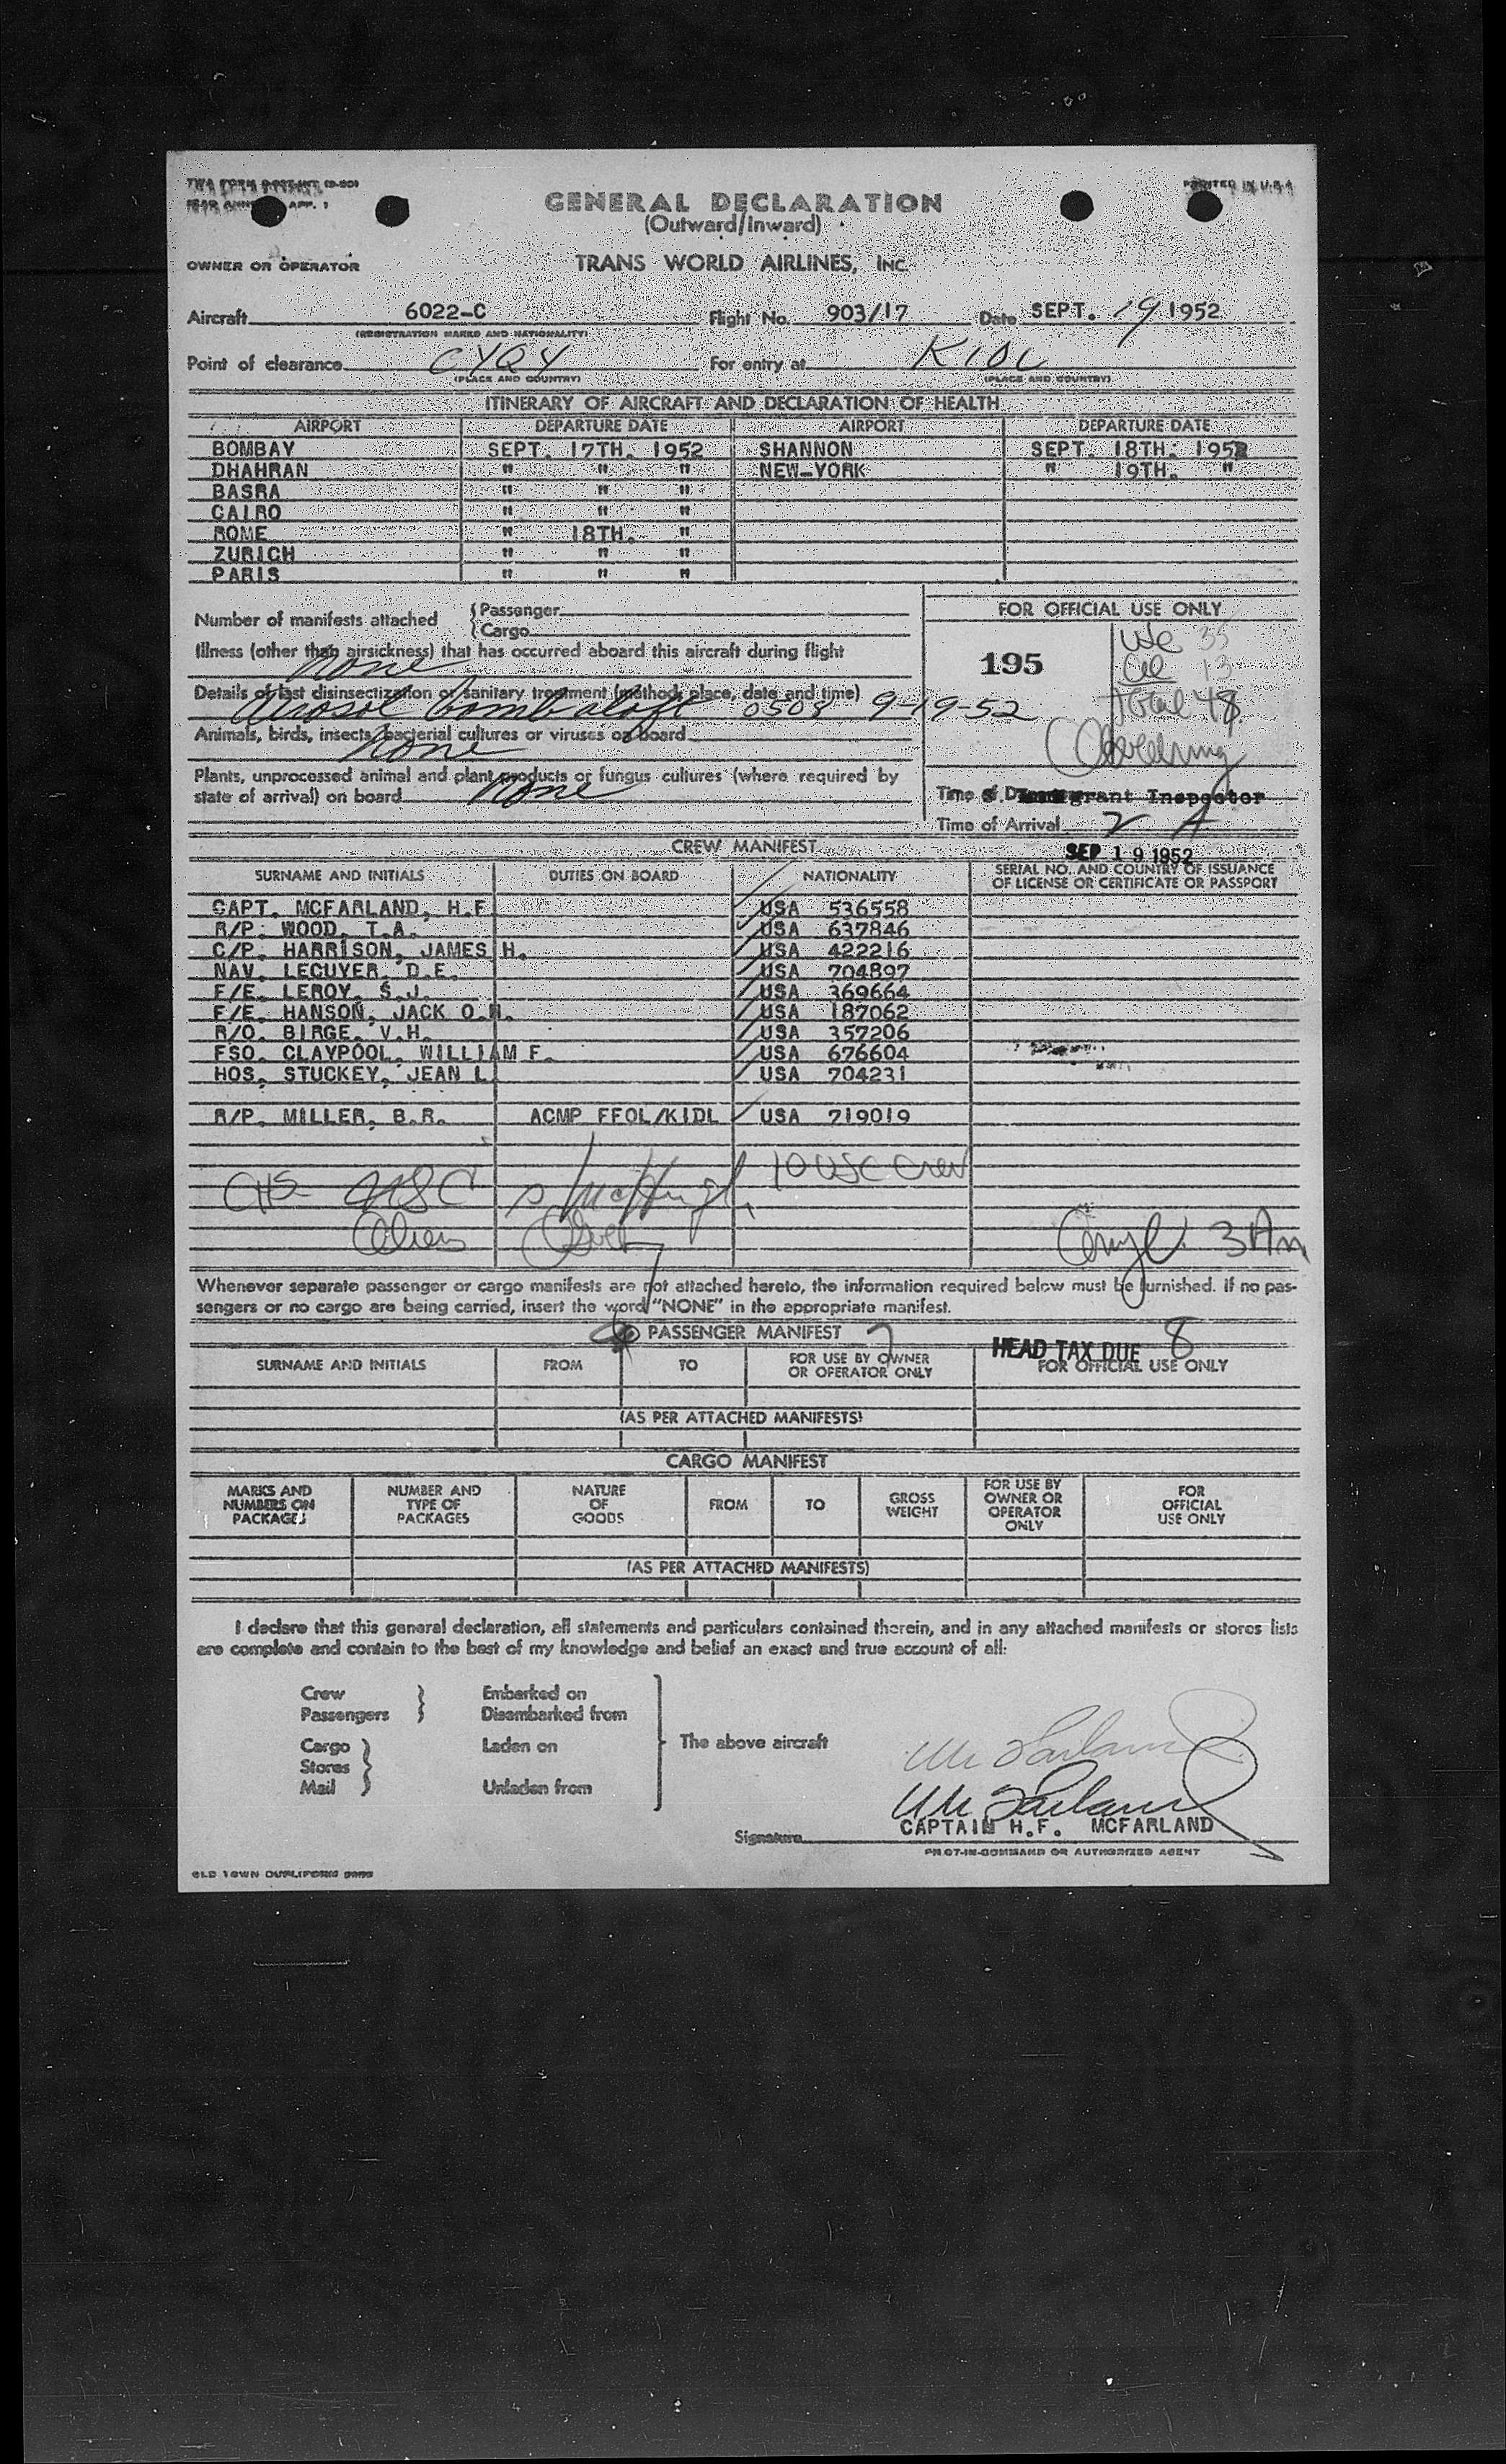 PRINTED IN U.S.A
GENERAL DECLARATION
(Outward/Inward)
OWNER OR OPERATOR TRANS WORLD AIRLINES, INC.
Aircraft 6022-C Flight No. 903/17 Date SEPT. 19 1952
(REGISTRATION MARKS AND NATIONALITY)
Point of clearance CYQY For entry at KIDL
(PLACE AND COUNTRY) (PLACE AND COUNTRY)
ITINERARY OF AIRCRAFT AND DECLARATION OF HEALTH
AIRPORT DEPARTURE DATE AIRPORT DEPARTURE DATE
BOMBAY SEPT. 17TH. 1952 SHANNON SEPT. 18TH. 1952
DHAHRAN " " " NEW-YORK " 19TH. "
BASRA " " "
CAIRO " " "
ROME " 18TH. "
ZURICH " " "
PARIS " " "
Number of manifests attached { Passenger
{ Cargo
FOR OFFICIAL USE ONLY
Illness (other than airsickness) that has occurred aboard this aircraft during flight
None
195
USC 35
Al 13
Total 48
Details of last disinsectization or sanitary treatment (method, place, date and time)
Aerosol bomb aloft 0508 9-19-52
Animals, birds, insects, bacterial cultures or viruses on board
None
Plants, unprocessed animal and plant products or fungus cultures (where required by
state of arrival) on board None
Immigrant Inspector
Time of Arrival 2 A
CREW MANIFEST
SEP 19 1952
SURNAME AND INITIALS DUTIES ON BOARD NATIONALITY SERIAL NO. AND COUNTRY OF ISSUANCE
OF LICENSE OR CERTIFICATE OR PASSPORT
CAPT. MCFARLAND, H.F. USA 536558
R/P. WOOD, T.A. USA 637846
C/P. HARRISON, JAMES H. USA 422216
NAV. LECUYER, D.E. USA 704897
F/E. LEROY, S.J. USA 369664
F/E. HANSON, JACK O.H. USA 187062
R/O. BIRGE, V.H. USA 357206
FSO. CLAYPOOL, WILLIAM F. USA 676604
HOS. STUCKEY, JEAN L. USA 704231
R/P. MILLER, B.R. ACMP FFOL/KIDL USA 719019
10 USC Crew
USC
Aliens
3 Am
Whenever separate passenger or cargo manifests are not attached hereto, the information required below must be furnished. If no pas-
sengers or no cargo are being carried, insert the word "NONE" in the appropriate manifest.
PASSENGER MANIFEST
HEAD TAX DUE 8
SURNAME AND INITIALS FROM TO FOR USE BY OWNER
OR OPERATOR ONLY FOR OFFICIAL USE ONLY
(AS PER ATTACHED MANIFESTS)
CARGO MANIFEST
MARKS AND
NUMBERS ON
PACKAGES
NUMBER AND
TYPE OF
PACKAGES
NATURE
OF
GOODS
FROM
TO
GROSS
WEIGHT
FOR USE BY
OWNER OR
OPERATOR
ONLY
FOR
OFFICIAL
USE ONLY
(AS PER ATTACHED MANIFESTS)
I declare that this general declaration, all statements and particulars contained therein, and in any attached manifests or stores lists
are complete and contain to the best of my knowledge and belief an exact and true account of all:
Crew } Embarked on
Passengers } Disembarked from
The above aircraft
Cargo } Laden on
Stores
Mail } Unladen from
McFarland
McFarland
CAPTAIN H.F. MCFARLAND
Signature
PILOT-IN-COMMAND OR AUTHORIZED AGENT